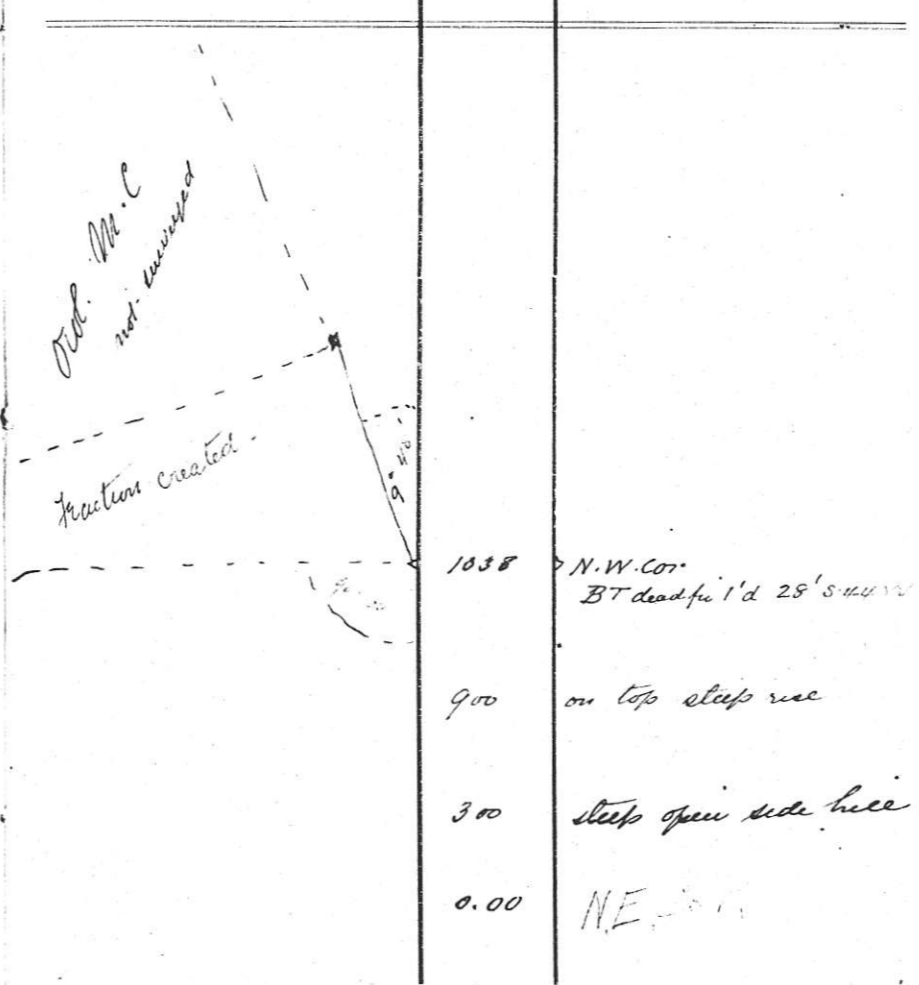 M.C
not surveyed
Fraction created.
9° 40'
1038 N.W. Cor.
BT dead fir 1'd 28' S 44
900 on top steep rise
300 steep open side hill
0.00 N.E.